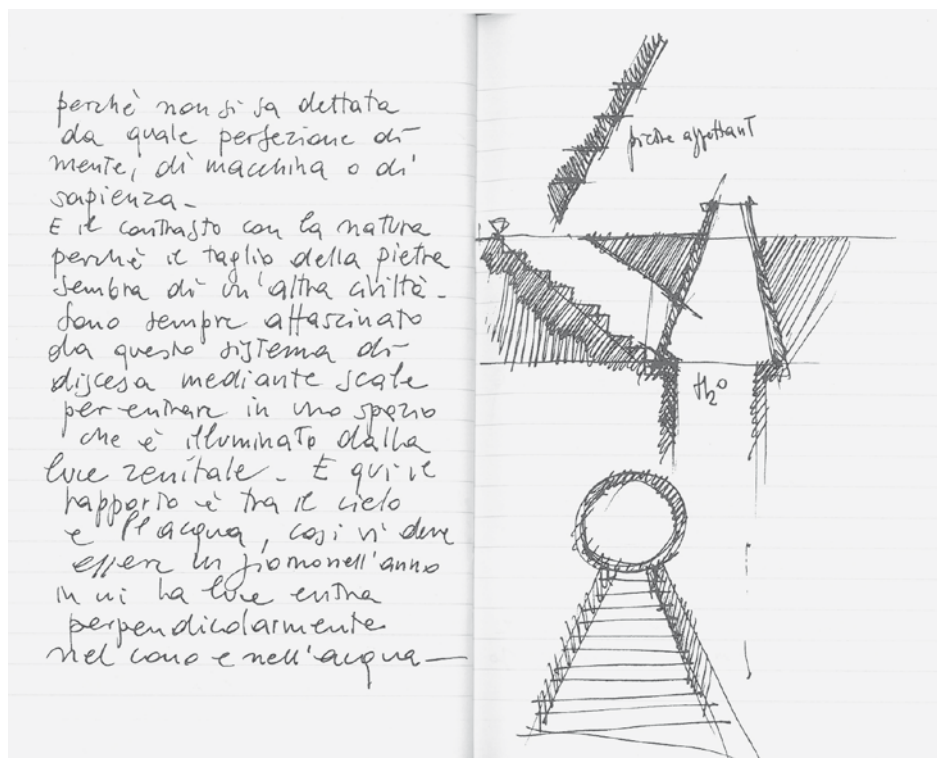 perchè non si sa dettata
da quale perfezione di
mente, di macchina o di
sapienza.
E il contrasto con la natura
perchè il taglio della pietra
sembra di un'altra civiltà.
Sono sempre affascinato
da questo sistema di
discesa mediante scale
per entrare in uno spazio
che è illuminato dalla
luce zenitale. E qui il
rapporto è tra il cielo
e l'acqua, così vi deve
essere un giorno nell'anno
in cui la luce entra
perpendicolarmente
nel cono e nell'acqua —
pietre aggettant
H₂O